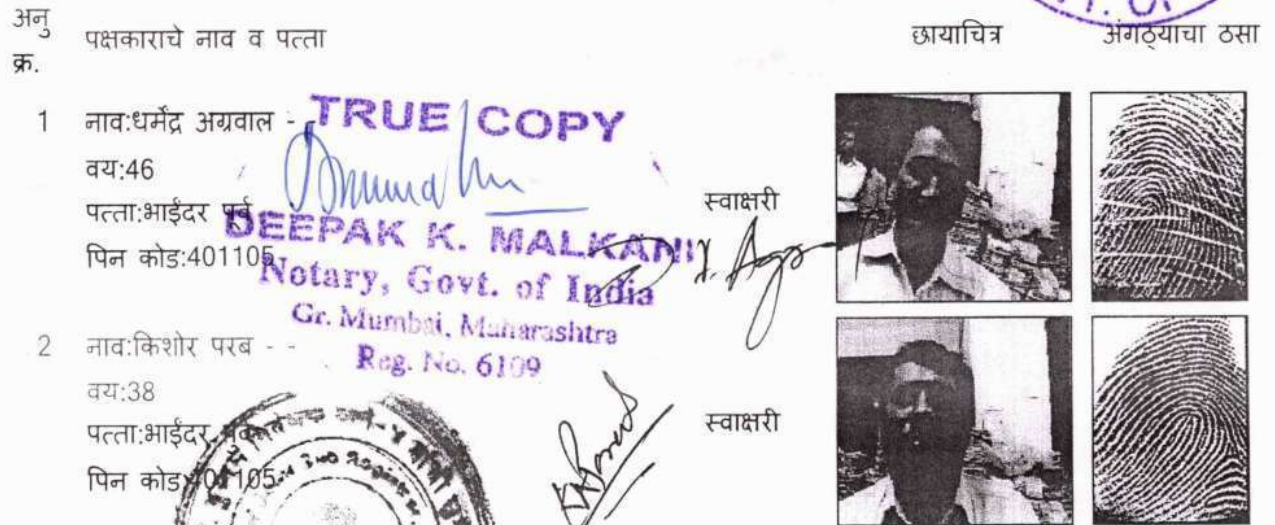 अनु क्र.
पक्षकाराचे नाव व पत्ता
छायाचित्र
अंगठ्याचा ठसा
1
नाव:धर्मेंद्र अग्रवाल -
वय:46
पत्ता:भाईंदर पूर्व
पिन कोड:401105
स्वाक्षरी
TRUE COPY
DEEPAK K. MALKANI
Notary, Govt. of India
Gr. Mumbai, Maharashtra
Reg. No. 6109
2
नाव:किशोर परब - -
वय:38
पत्ता:भाईंदर
पिन कोड:401105
स्वाक्षरी